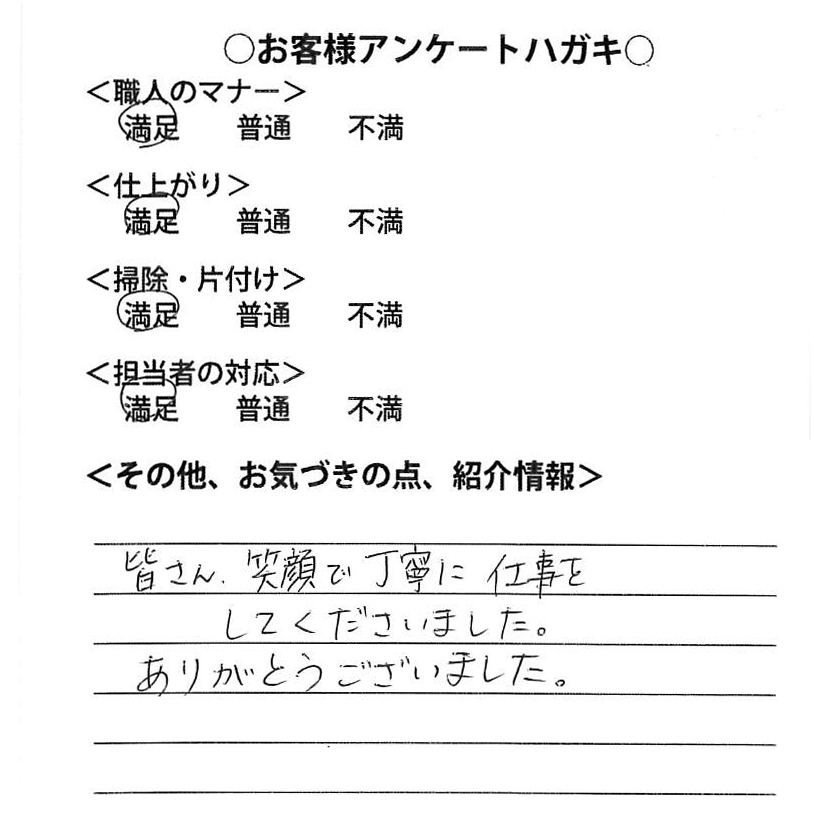 ○お客様アンケートハガキ○
＜職人のマナー＞
満足　　普通　　不満
＜仕上がり＞
満足　　普通　　不満
＜掃除・片付け＞
満足　　普通　　不満
＜担当者の対応＞
満足　　普通　　不満
＜その他、お気づきの点、紹介情報＞
皆さん、笑顔で丁寧に仕事を
してくださいました。
ありがとうございました。